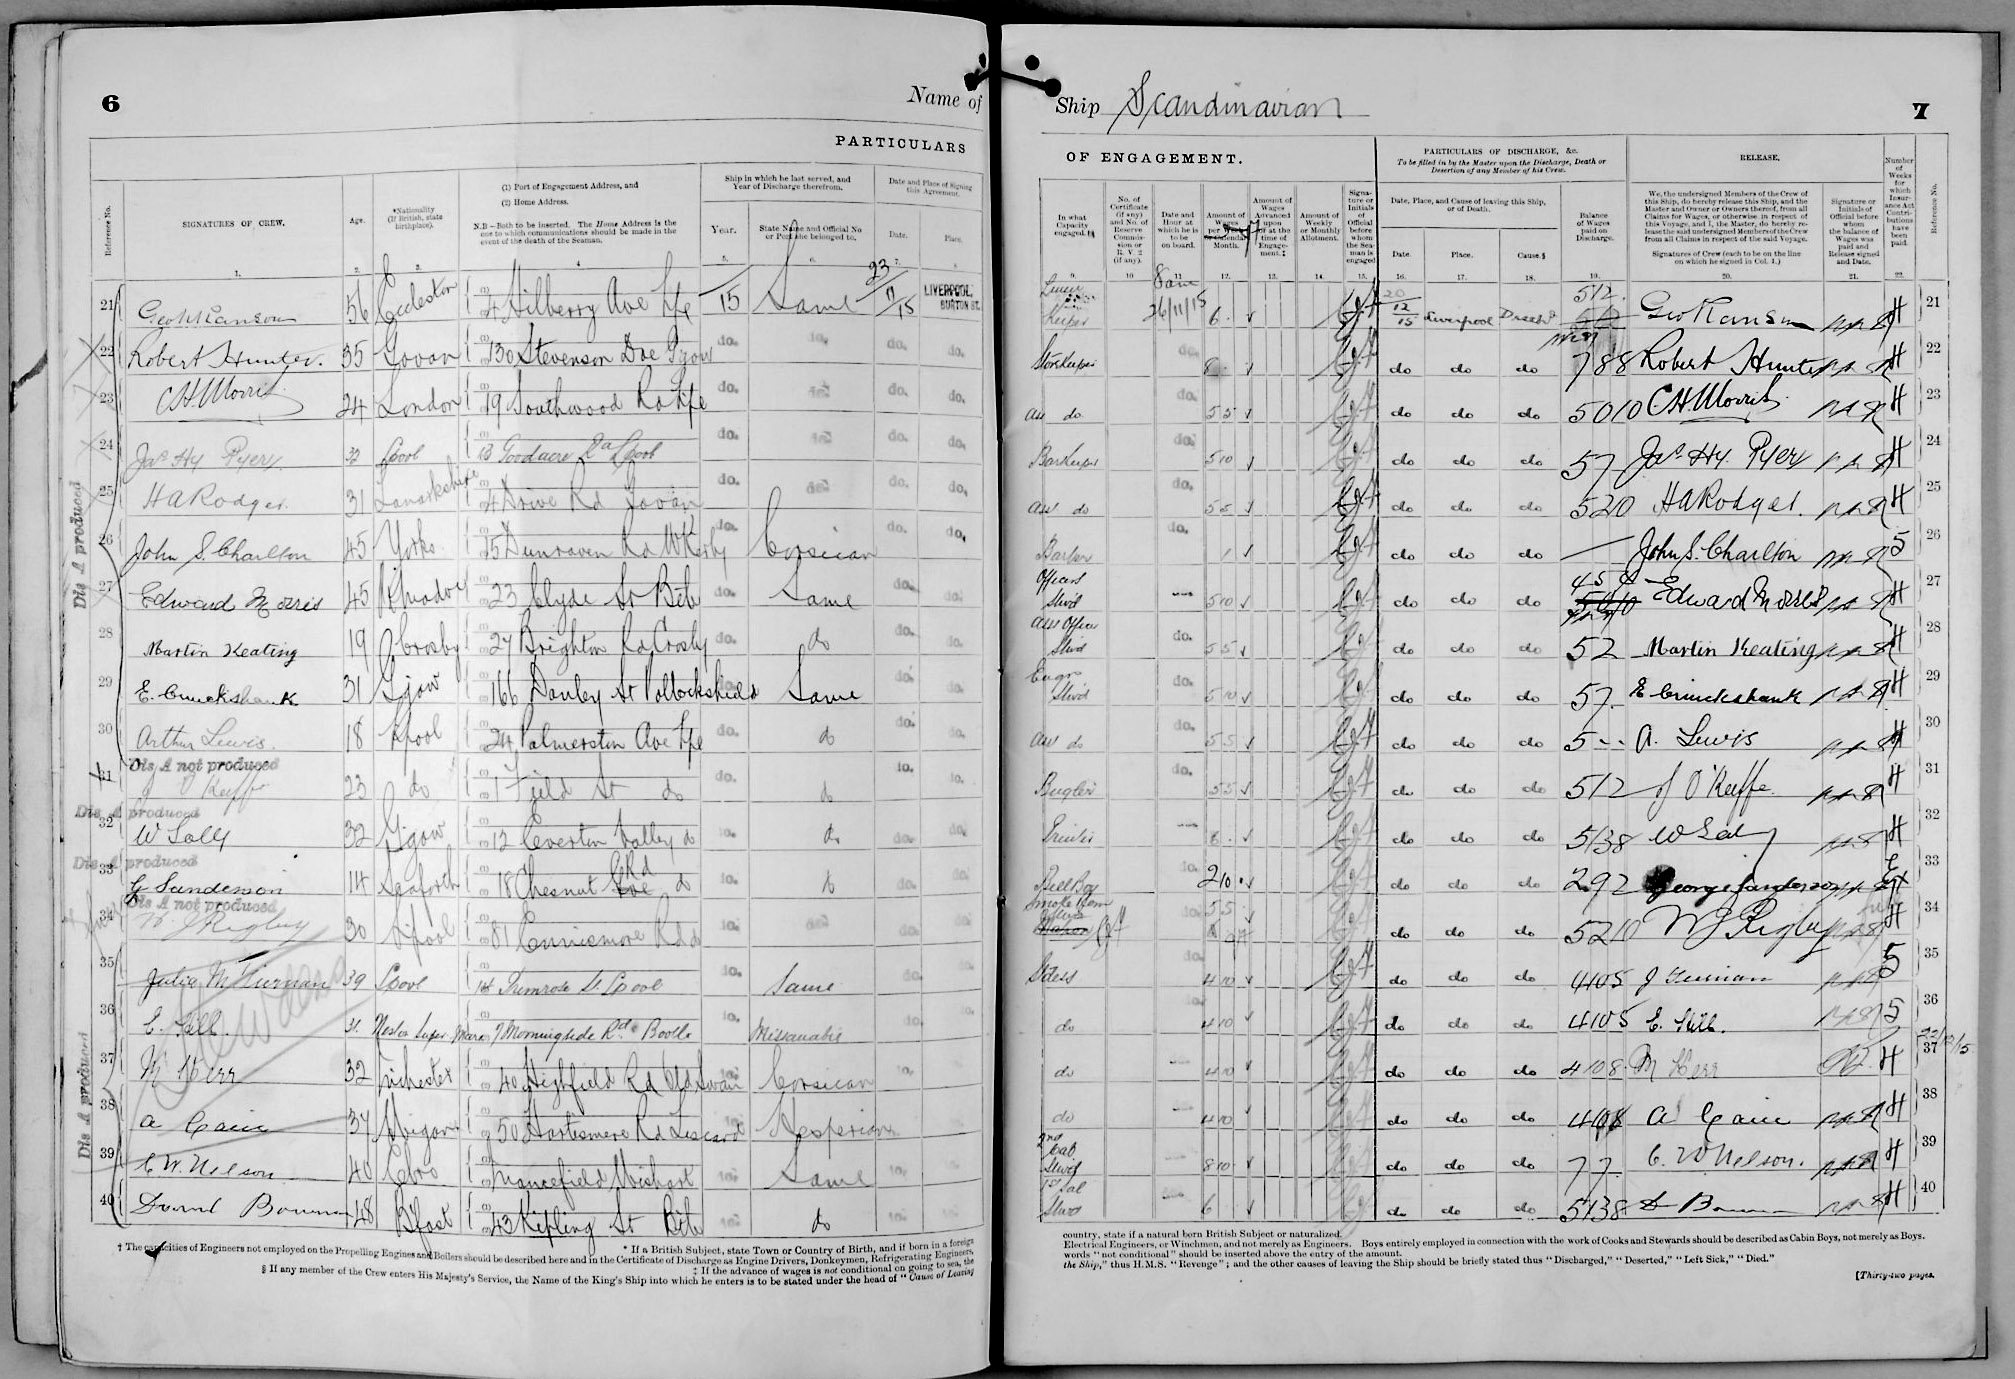 6
Name of
PARTICULARS
Reference No.
SIGNATURES OF CREW.
Age.
*Nationality (If British, state birthplace).
(1) Port of Engagement Address, and
(2) Home Address.
N.B.—Both to be inserted. The Home Address is the one to which communications should be made in the event of the death of the Seaman.
Ship in which he last served, and Year of Discharge therefrom.
Year.
State Name and Official No or Port she belonged to.
Date and Place of Signing this Agreement.
Date.
Place.
1. 2. 3. 4. 5. 6. 7. 8.
21 Geo Ranson 56 Eccleston 4 Hilberry Ave Lpl 15 Same 23/11/15 LIVERPOOL, BURTON ST.
22 Robert Hunter. 35 Govan 130 Stevenson Dve Ggow do. do. do. do.
23 C H Morris 24 London 19 Southwood Rd Lpl do. do. do. do.
24 Jas Hy Pyery 32 Lpool 13 Goodacre Rd Lpool do. do. do. do.
25 H A Rodger. 31 Lanarkshire 4 Drive Rd Govan do. do. do. do.
Dis A produced
26 John S. Charlton 45 Yorks 25 Dunraven Rd W Kirby do. Corsican do. do.
27 Edward Morris 45 23 Clyde St Btle do. Same do. do.
28 Martin Keating 19 Crosby 27 Brighton Rd Crosby do. do do. do.
29 E. Cruickshank 31 Ggow 166 Danley St Pollockshields do. Same do. do.
30 Arthur Lewis. 18 Lpool 24 Palmerston Ave Lpl do. do do. do.
Dis A not produced
31 J O'Keeffe 23 do 1 Field St do do. do do. do.
Dis A produced
32 W Lally 32 Ggow 12 Everton Valley do do. do do. do.
Dis A produced
33 G Sanderson 14 Seaforth 18 Chesnut Rd do do. do do. do.
Dis A not produced
34 W J Rigby 30 Lpool 81 Enniismore Rd do do. do. do. do.
35 Julia McTiernan 39 Lpool 14 Primrose St Lpool do. Same do. do.
36 E. 31 Weston Super Mare 7 Morningside Rd Bootle do. Missanabie do. do.
37 M Kerr 32 40 Highfield Rd Old Swan do. Corsican do. do.
Dis A produced
38 A Cain 37 Wigan 50 Hartismere Rd Liscard do. Hesperian
39 C W. Nelson 40 Mancefield Wishart do. Same do. do.
40 David Bowman 48 Bfast 43 Kipling St Btle do. do do. do.
† The capacities of Engineers not employed on the Propelling Engines and Boilers should be described here and in the Certificate of Discharge as Engine Drivers, Donkeymen, Refrigerating Engineers,
* If a British Subject, state Town or Country of Birth, and if born in a foreign
‡ If the advance of wages is not conditional on going to sea, the
§ If any member of the Crew enters His Majesty's Service, the Name of the King's Ship into which he enters is to be stated under the head of "Cause of Leaving
Ship Scandinavian
7
OF ENGAGEMENT.
PARTICULARS OF DISCHARGE, &c.
To be filled in by the Master upon the Discharge, Death or Desertion of any Member of his Crew.
RELEASE.
In what Capacity engaged.
No. of Certificate (if any) and No. of Reserve Commission or R.V.2 (if any).
Date and Hour at which he is to be on board.
Amount of Wages per Calendar Month.
Amount of Wages Advanced upon or at the time of Engagement.‡
Amount of Weekly or Monthly Allotment.
Signature or Initials of Official before whom the Seaman is engaged
Date, Place, and Cause of leaving this Ship, or of Death.
Date. Place. Cause.§
Balance of Wages paid on Discharge.
We, the undersigned Members of the Crew of this Ship, do hereby release this Ship, and the Master and Owner or Owners thereof, from all Claims for Wages, or otherwise in respect of this Voyage, and I, the Master, do hereby release the said undersigned Members of the Crew from all Claims in respect of the said Voyage.
Signatures of Crew (each to be on the line on which he signed in Col. 1.)
Signature or Initials of Official before whom the balance of Wages was paid and Release signed and Date.
Number of Weeks for which Insurance Act Contributions have been paid.
Reference No.
9. 10 11 12. 13. 14. 15. 16. 17. 18. 19. 20. 21. 22.
Linen Keeper 8am 26/11/15 6 - 20/12/15 Liverpool Disch'd 512 Geo Ranson H 21
Storekeeper do. 8 do do do 788 Robert Hunter H 22
Ass do do. 55 do do do 5010 C H Morris H 23
Barkeeper do. 510 do do do 57 Jas Hy. Pyery H 24
Ass do do. 55 do do do 5210 H A Rodger. H 25
Barber do. 1 do do do — John S. Charlton 5 26
Officers Stwd 510 do do do Edward Morris H 27
Ass Officer Stwd do. 55 do do do 52 Martin Keating H 28
Engrs Stwd do. 510 do do do 57 E Cruickshank H 29
Ass do do. 55 do do do 5 - - A. Lewis H 30
Bugler do. 55 do do do 512 J O'Keeffe H 31
Printer 6 - do do do 5138 W Lally H 32
Bell Boy do. 210 do do do 292 George Sanderson 33
Smoke Room do. 55 do do do 5210 W J Rigby H 34
Stdess do. 410 do do do 4105 J Tiernan 5 35
do do. 410 do do do 4105 E. 5 36
do 410 do do do 4108 M Kerr H 22/12/15 37
do 410 do do do 4108 A Cain H 38
2nd Cab Stwd 810 do do do 77 C. W Nelson. H 39
1st Sal Stwd 6 do do do 5138 D Bowman H 40
country, state if a natural born British Subject or naturalized.
Electrical Engineers, or Winchmen, and not merely as Engineers. Boys entirely employed in connection with the work of Cooks and Stewards should be described as Cabin Boys, not merely as Boys.
words "not conditional" should be inserted above the entry of the amount.
the Ship," thus H.M.S. "Revenge"; and the other causes of leaving the Ship should be briefly stated thus "Discharged," "Deserted," "Left Sick," "Died."
[Thirty-two pages.